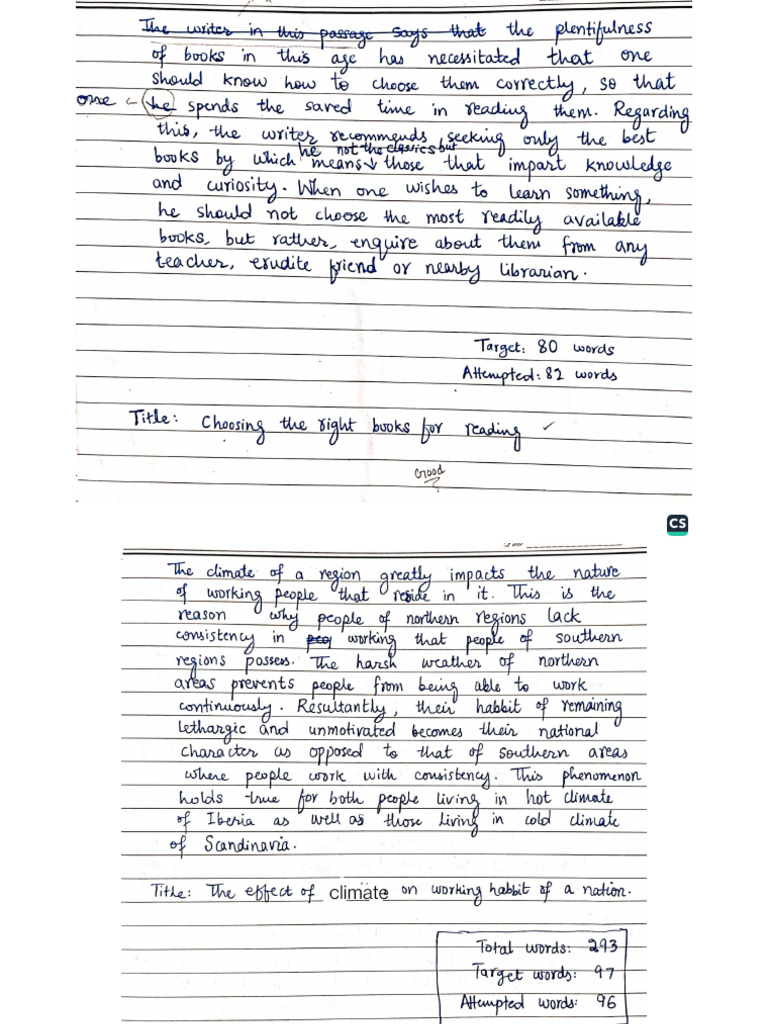 The writer in this passage says that the plentifulness
of books in this age has necessitated that one
should know how to choose them correctly, so that
one he spends the saved time in reading them. Regarding
this, the writer recommends, seeking only the best
he not the classics but
books by which means those that impart knowledge
and curiosity. When one wishes to learn something,
he should not choose the most readily available
books, but rather, enquire about them from any
teacher, erudite friend or nearby librarian.
Target: 80 words
Attempted: 82 words
Title: Choosing the right books for reading
Good
CS
The climate of a region greatly impacts the nature
of working people that reside in it. This is the
reason why people of northern regions lack
consistency in working that people of southern
regions possess. The harsh weather of northern
areas prevents people from being able to work
continuously. Resultantly, their habbit of remaining
lethargic and unmotivated becomes their national
character as opposed to that of southern areas
where people work with consistency. This phenomenon
holds true for both people living in hot climate
of Iberia as well as those living in cold climate
of Scandinavia.
Title: The effect of climate on working habbit of a nation.
Total words: 293
Target words: 97
Attempted words: 96